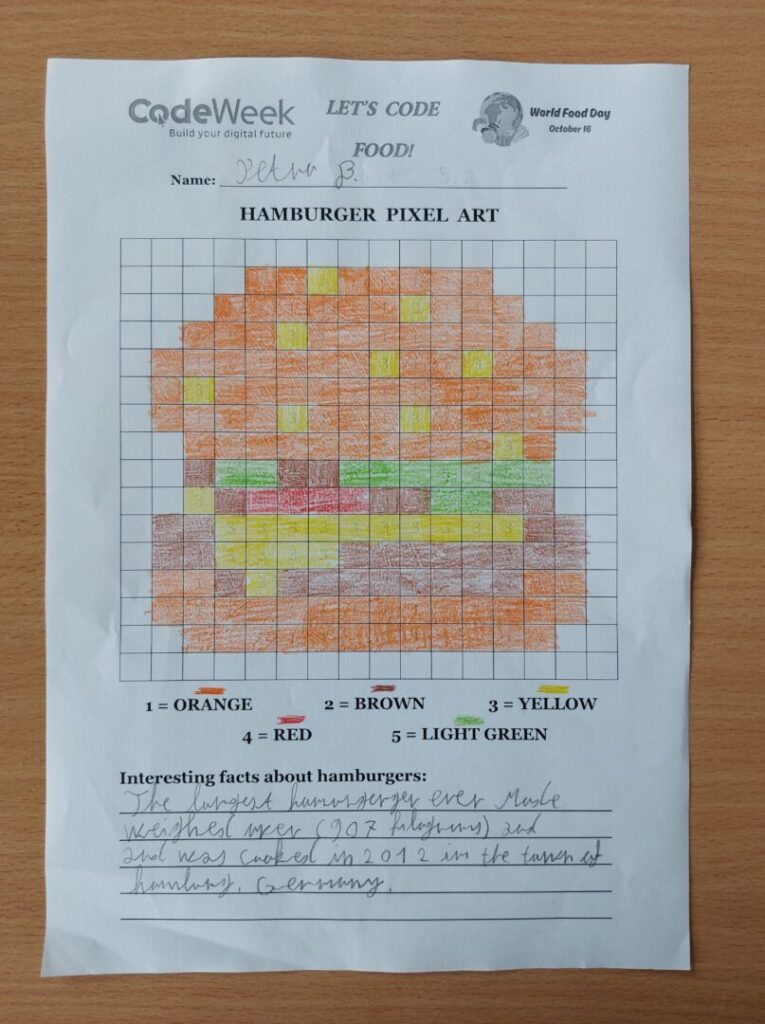 CodeWeek
Build your digital future
LET'S CODE
FOOD!
World Food Day
October 16
Name: B.
HAMBURGER PIXEL ART
1 = ORANGE
2 = BROWN
3 = YELLOW
4 = RED
5 = LIGHT GREEN
Interesting facts about hamburgers:
The largest ever Made
weighed (907 kilograms) and
and was cooked in 2012 in the town of
Germany.